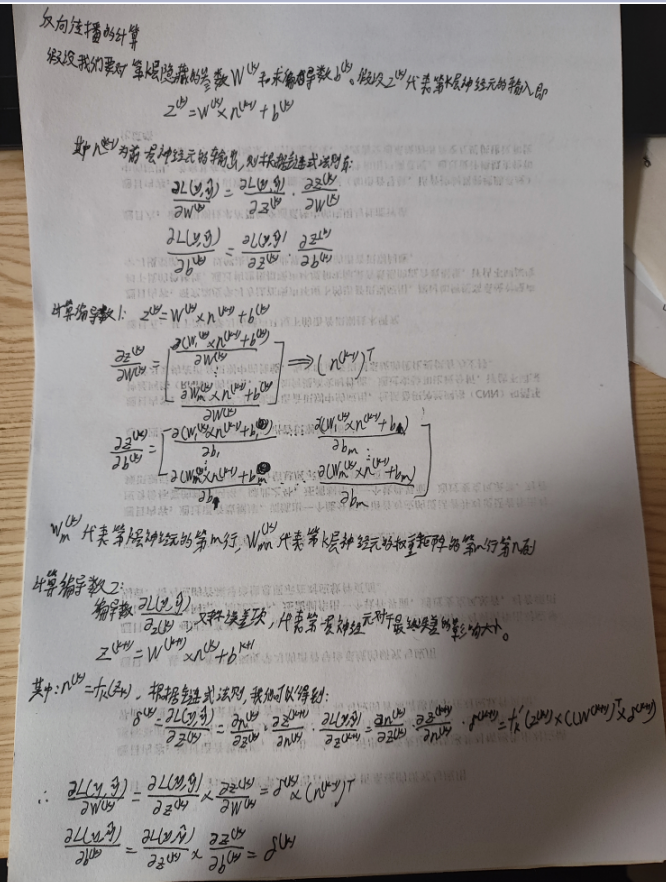 反向传播的计算
假设我们要对第k层隐藏的参数 W^(k) 和求偏导数 b^(k)。假设 z^(k) 代表第k层神经元的输入即
z^(k) = W^(k) × n^(k-1) + b^(k)
其中 n^(k-1) 为前一层神经元的输出,则根据链式法则有:
∂L(y,ŷ)/∂W^(k) = ∂L(y,ŷ)/∂z^(k) · ∂z^(k)/∂W^(k)
∂L(y,ŷ)/∂b^(k) = ∂L(y,ŷ)/∂z^(k) · ∂z^(k)/∂b^(k)
计算偏导数1: z^(k) = W^(k) × n^(k-1) + b^(k)
∂z^(k)/∂W^(k) = [ ∂(W₁^(k) × n^(k-1) + b^(k))/∂W^(k) ⋮ ∂(W_m^(k) × n^(k-1) + b^(k))/∂W^(k) ] ⟹ (n^(k-1))^T
∂z^(k)/∂b^(k) = [ ∂(W₁^(k) × n^(k-1) + b₁)/∂b₁ ⋯ ∂(W₁^(k) × n^(k-1) + b₁)/∂b_m
⋮ ⋮
∂(W_m^(k) × n^(k-1) + b_m)/∂b₁ ⋯ ∂(W_m^(k) × n^(k-1) + b_m)/∂b_m ]
W_m^(k) 代表第k层神经元的第m行,W_mn^(k) 代表第k层神经元的权重矩阵的第m行第n列
计算偏导数2:
偏导数 ∂L(y,ŷ)/∂z^(k) 又称误差项,代表第一层神经元对于最终误差的影响大小。
z^(k+1) = W^(k+1) × n^(k) + b^(k+1)
其中: n^(k) = f_k(z_k),根据链式法则,我们可以得到:
δ^(k) = ∂L(y,ŷ)/∂z^(k) = ∂n^(k)/∂z^(k) · ∂z^(k+1)/∂n^(k) · ∂L(y,ŷ)/∂z^(k+1) = ∂n^(k)/∂z^(k) · ∂z^(k+1)/∂n^(k) · δ^(k+1) = f_k'(z^(k)) × ((W^(k+1))^T × δ^(k+1))
∴ ∂L(y,ŷ)/∂W^(k) = ∂L(y,ŷ)/∂z^(k) × ∂z^(k)/∂W^(k) = δ^(k) × (n^(k-1))^T
∂L(y,ŷ)/∂b^(k) = ∂L(y,ŷ)/∂z^(k) × ∂z^(k)/∂b^(k) = δ^(k)